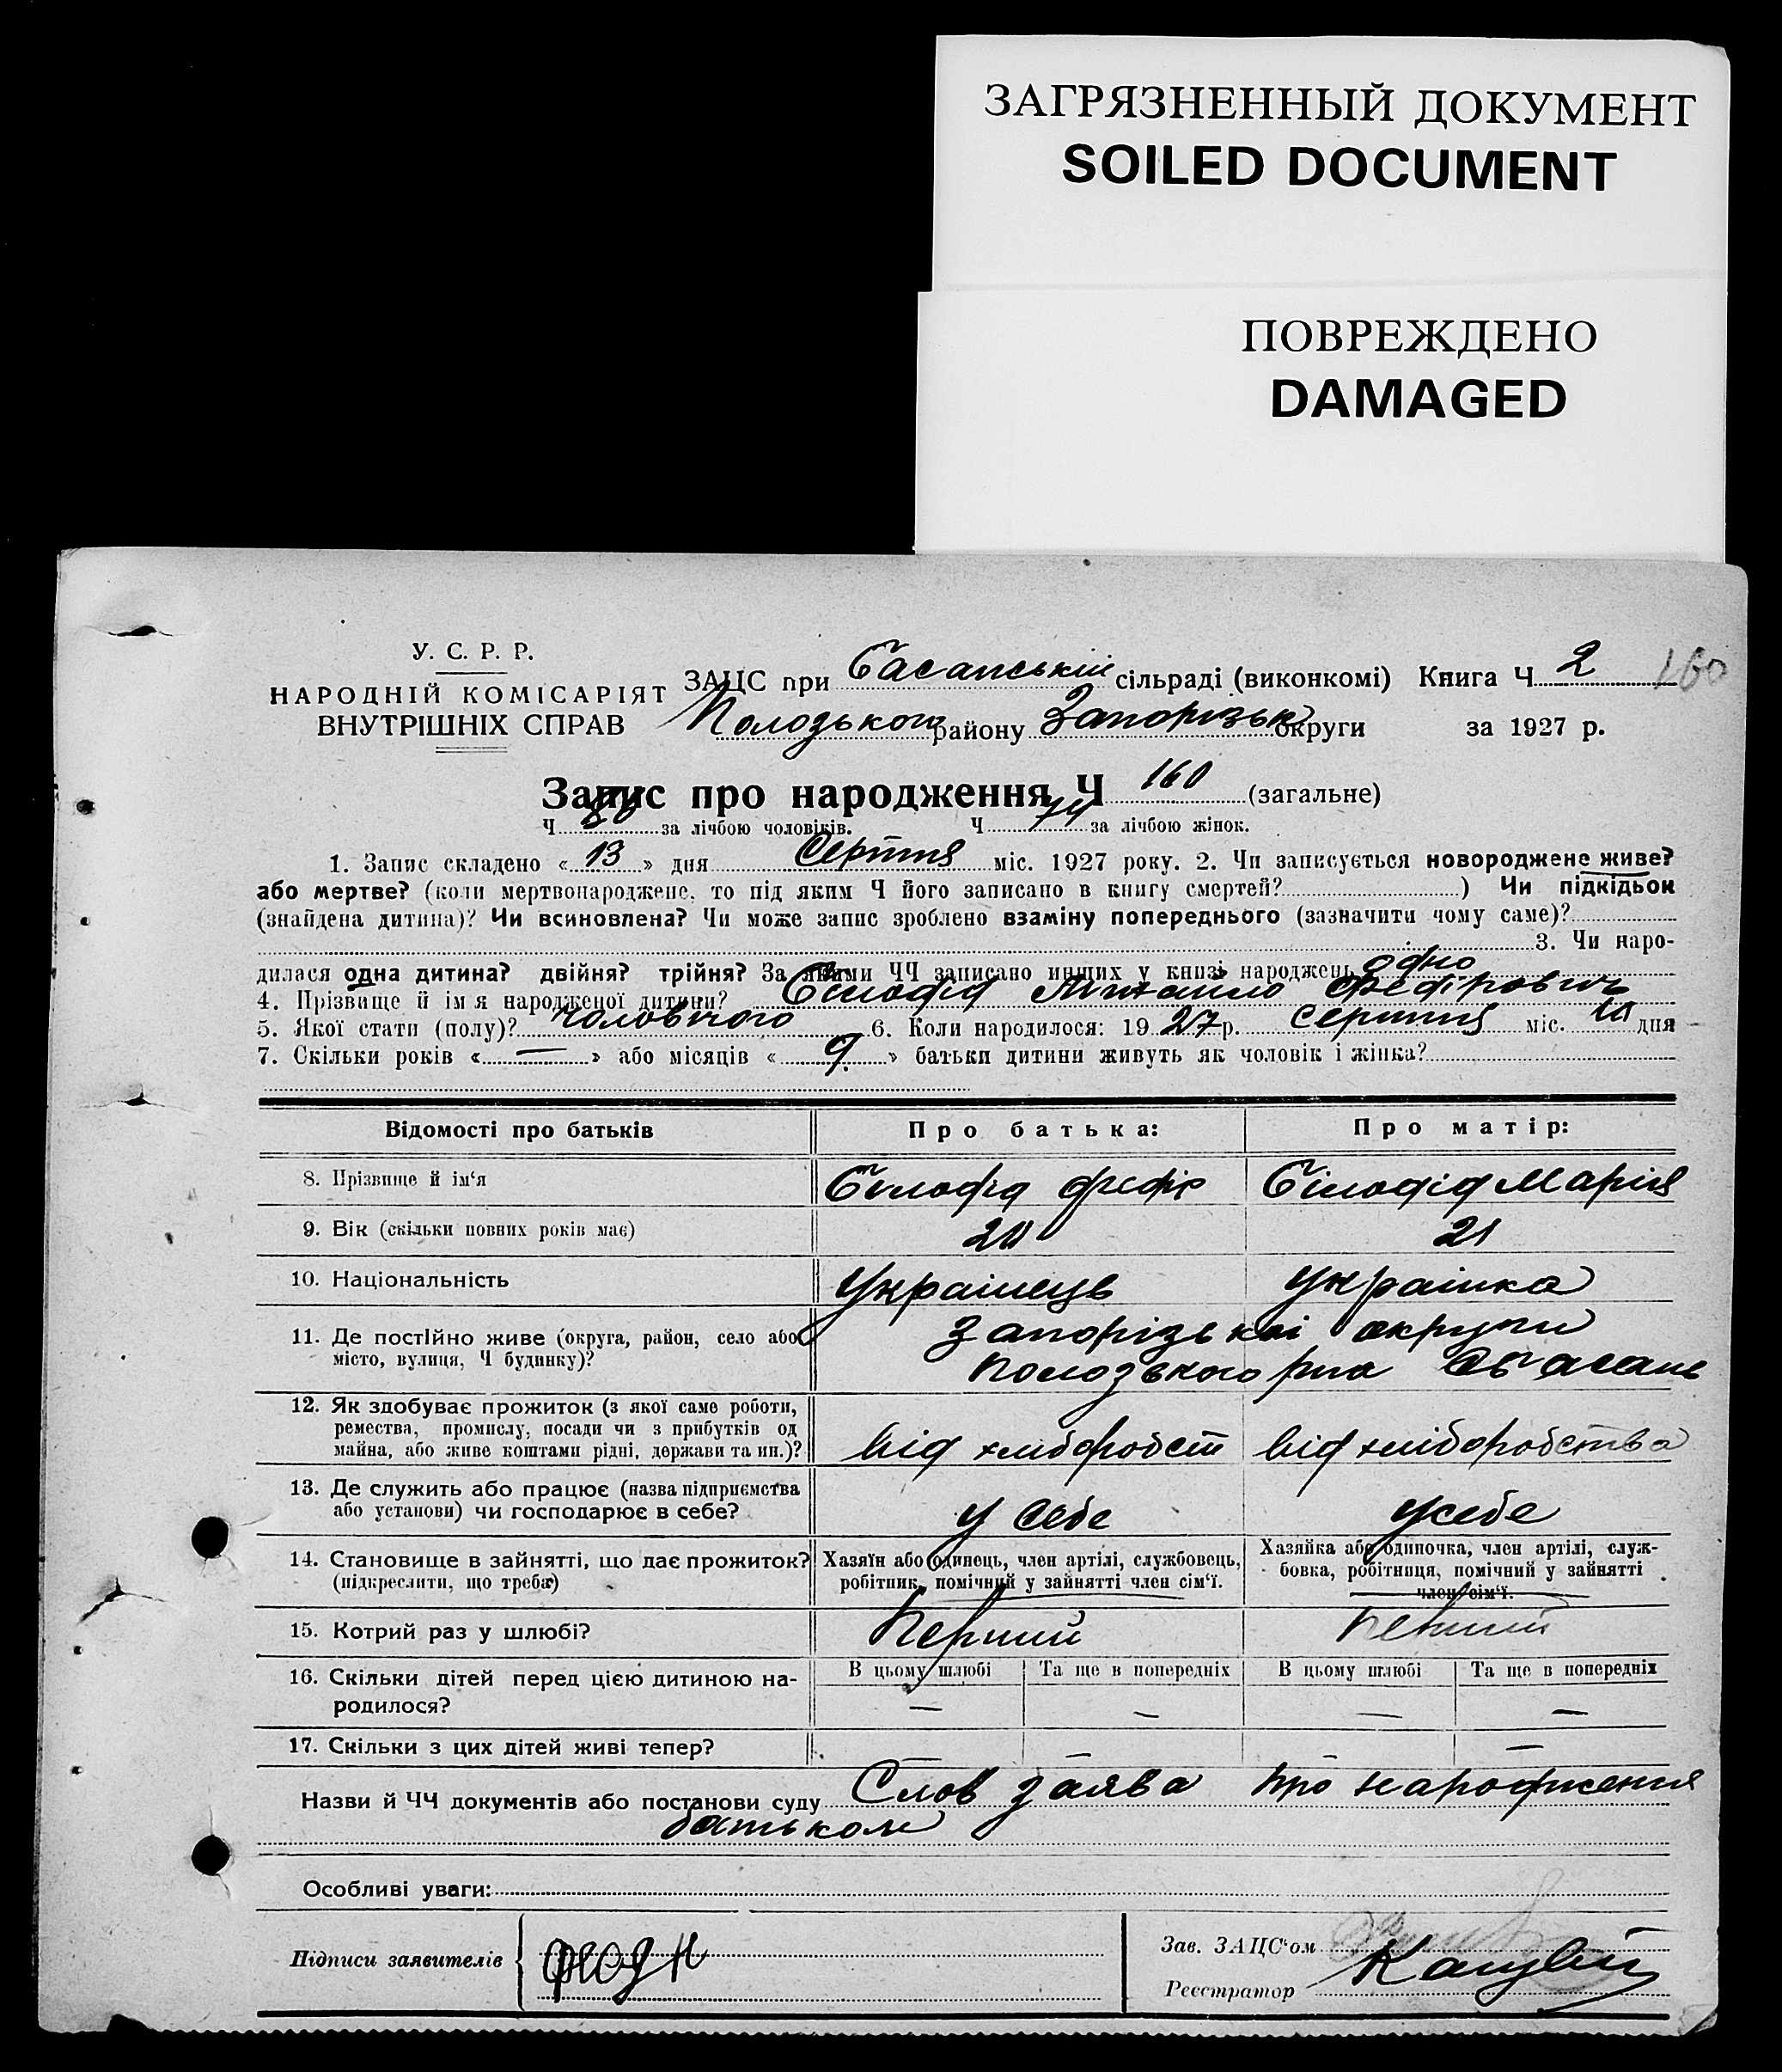 ЗАГРЯЗНЕННЫЙ ДОКУМЕНТ
SOILED DOCUMENT
ПОВРЕЖДЕНО
DAMAGED
У. С. Р. Р.
НАРОДНІЙ КОМІСАРІЯТ
ВНУТРІШНІХ СПРАВ
ЗАЦС при Басанській сільраді (виконкомі) Книга Ч 2 160
Пологзького району Запорізьк округи за 1927 р.
Запис про народження Ч 160 (загальне)
Ч 86 за лічбою чоловіків. Ч 74 за лічбою жінок.
1. Запис складено «13» дня Серпня міс. 1927 року. 2. Чи записується новороджене живе?
або мертве? (коли мертвонароджене, то під яким Ч його записано в книгу смертей?) Чи підкідьок
(знайдена дитина)? Чи всиновлена? Чи може запис зроблено взаміну попереднього (зазначити чому саме)?
3. Чи наро-
дилася одна дитина? двійня? трійня? За якими ЧЧ записано инших у книзі народжень одно
4. Прізвище й ім'я народженої дитини? Білодід Михайло Федірович
5. Якої стати (полу)? чоловічого 6. Коли народилося: 1927 р. Серпня міс. 10 дня
7. Скільки років «—» або місяців «9» батьки дитини живуть як чоловік і жінка?
Відомості про батьків Про батька: Про матір:
8. Прізвище й ім'я Білодід Федір Білодід Марія
9. Вік (скільки повних років має) 20 21
10. Національність Українець Українка
11. Де постійно живе (округа, район, село або Запорізької округи
місто, вулиця, Ч будинку)? Пологзького р-на с. Басань
12. Як здобуває прожиток (з якої саме роботи,
ремества, промислу, посади чи з прибутків од
майна, або живе коштами рідні, держави та ин.)? від хліборобст від хліборобства
13. Де служить або працює (назва підприємства
або установи) чи господарює в себе? у себе у себе
14. Становище в зайнятті, що дає прожиток? Хазяїн або одинець, член артілі, службовець, Хазяйка або одиночка, член артілі, служ-
(підкреслити, що треба) робітник, помічний у зайнятті член сім'ї. бовка, робітниця, помічний у зайнятті
член сім'ї.
15. Котрий раз у шлюбі? Перший Перший
16. Скільки дітей перед цією дитиною на- В цьому шлюбі Та ще в попередніх В цьому шлюбі Та ще в попередніх
родилося? — — — —
17. Скільки з цих дітей живі тепер? — — — —
Назви й ЧЧ документів або постанови суду Слов заява про народження
батьком
Особливі уваги:
Підписи заявителів
Зав. ЗАЦС'ом
Реєстратор